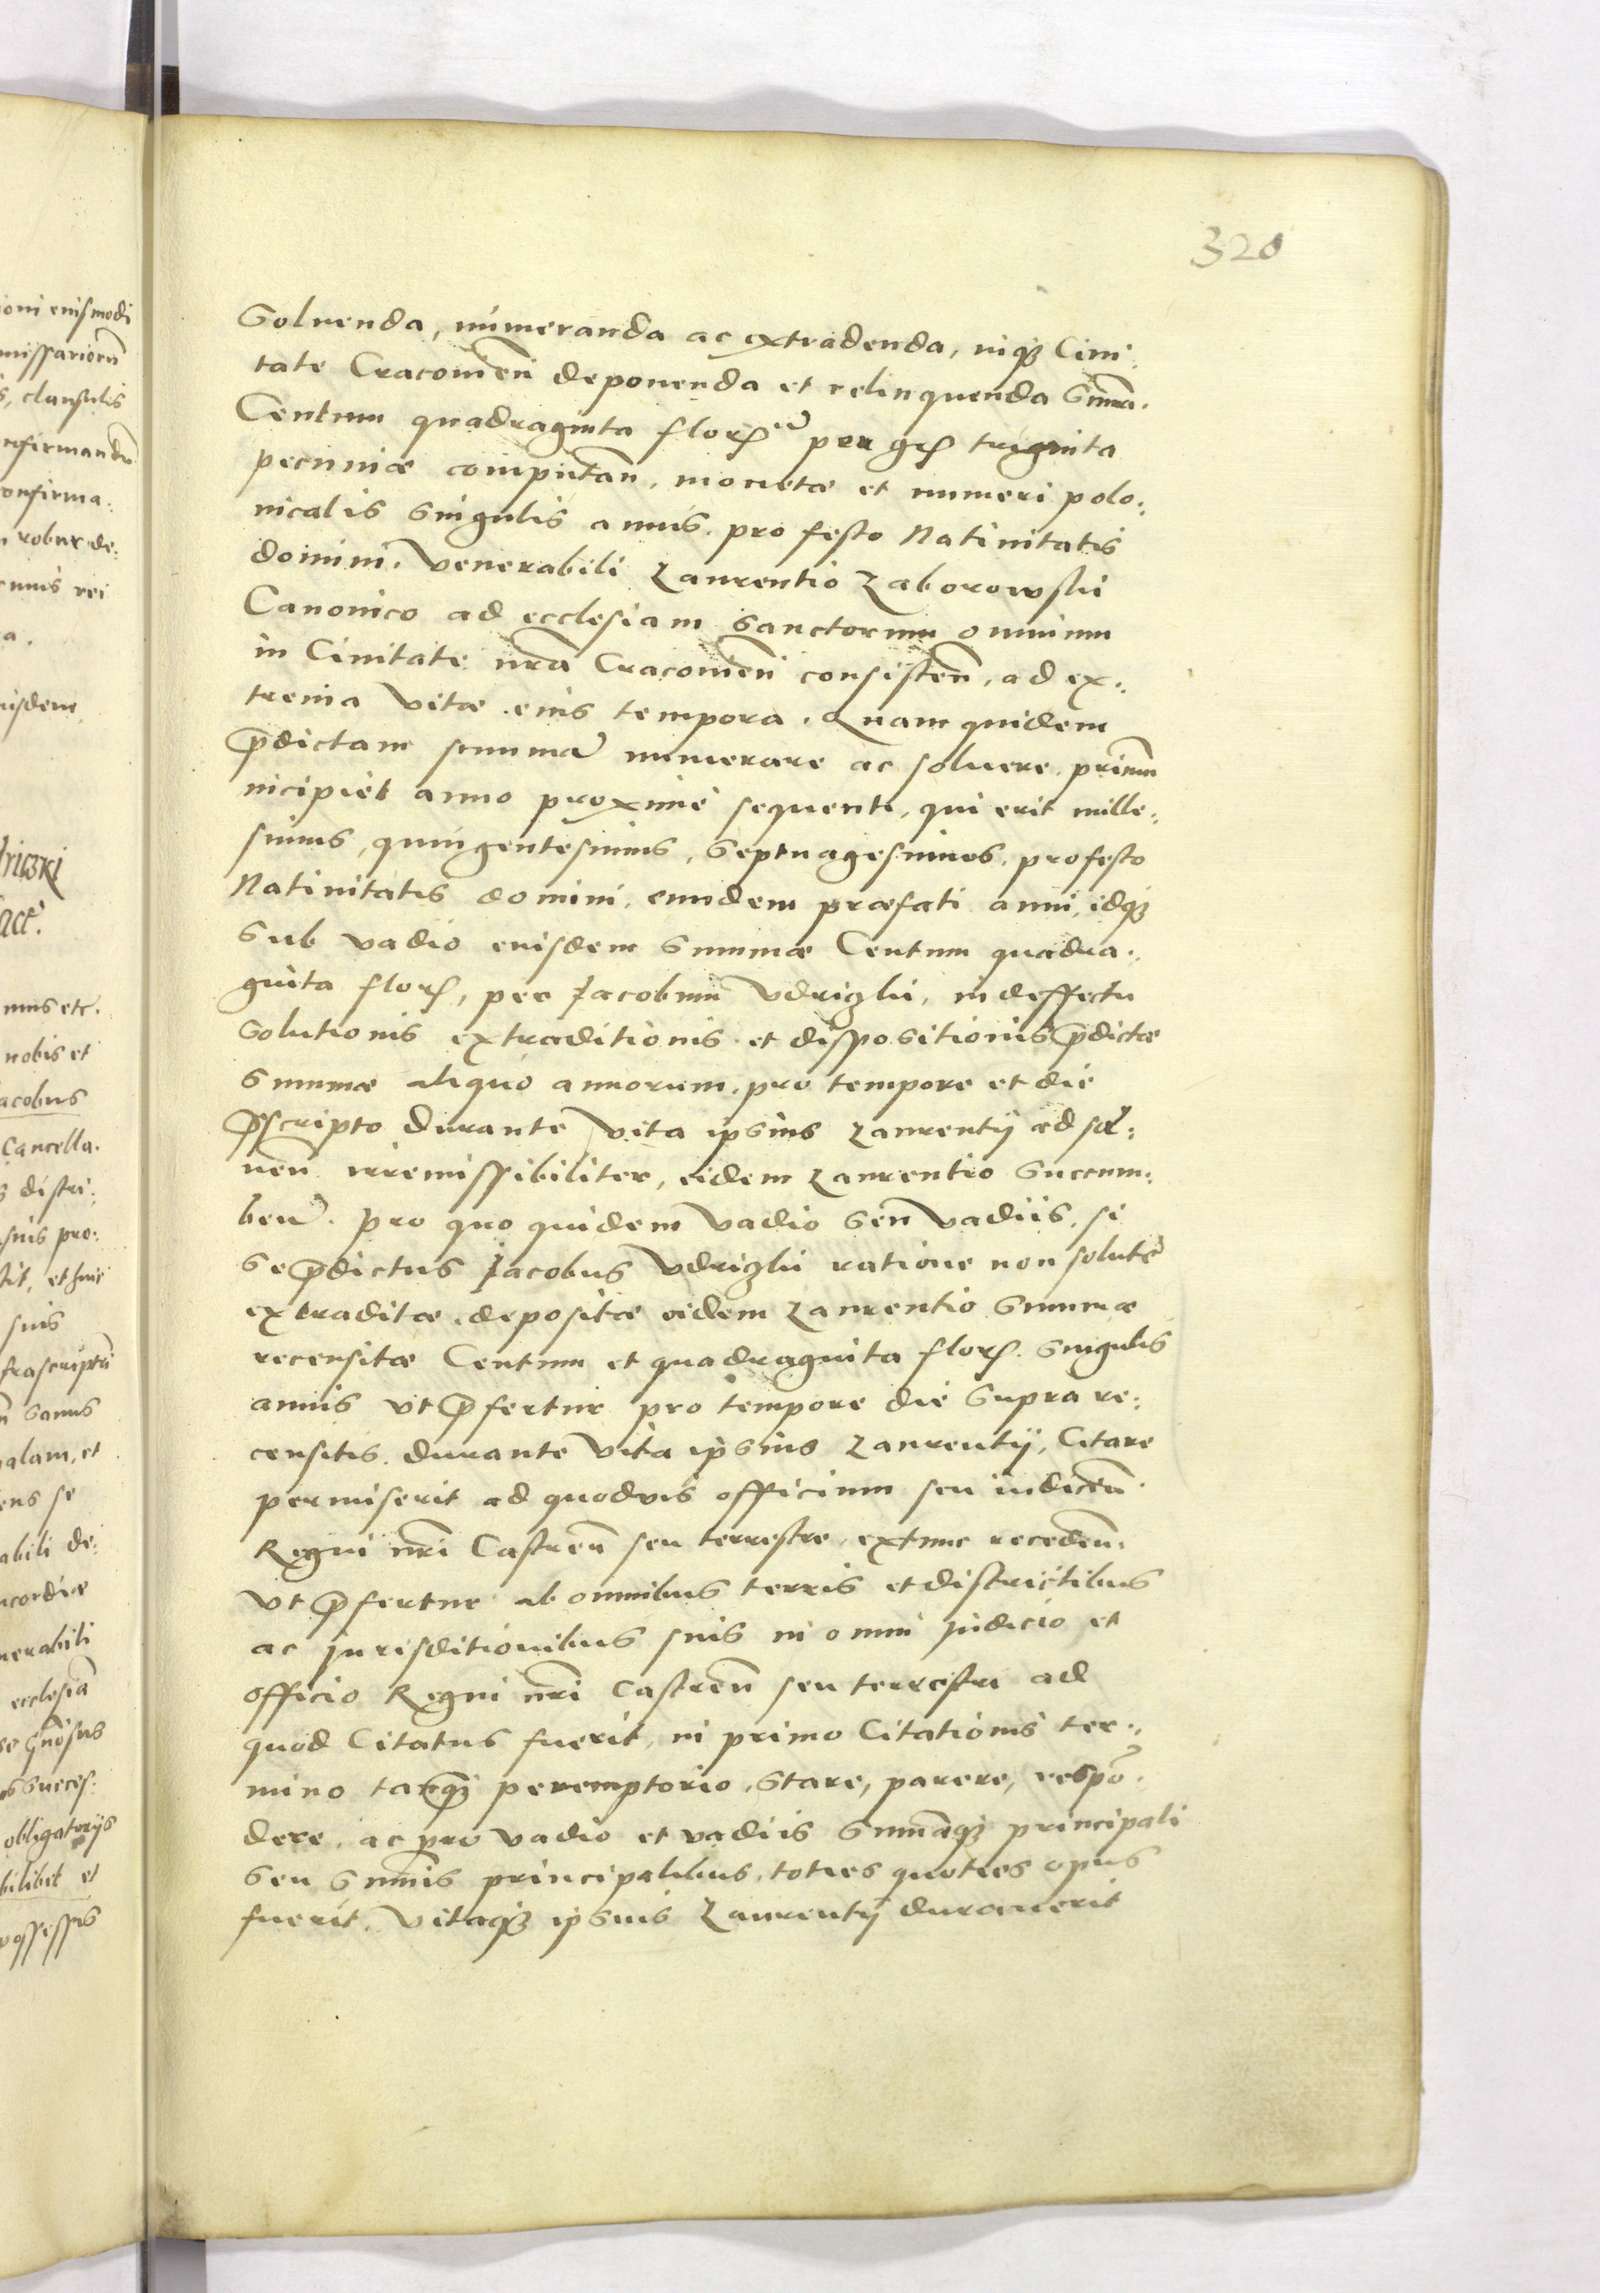 320
Soluenda, numeranda ac extradenda, inq₃ Ciui:
tate Cracouień deponenda et relinquenda Sum̃a.
Centum quadraginta florʒ per grʒ triginta
pecuniæ computań, monetæ et numeri polo:
nicalis Singulis annis, pro festo Natiuitatis
domini. Venerabili Laurentio Zaborowski
Canonico ad ecclesiam Sanctorum omnium
in Ciuitate nr̃a Cracouień consisteñ, ad ex:
trema vitæ eius tempora. Quam quidem
p̃dictam summã numerare ac soluere primum
incipiet anno proxime sequenti, qui erit mille:
simus, quingentesimus, Septuagesimus, pro festo
Natiuitatis domini, eiusdem præfati anni, idq₃
Sub vadio eiusdem Summæ Centum quadra:
ginta florʒ, per Jacobum Vdrizki, in deffectu
Solutionis extraditionis et dispositionis p̃dictæ
Summæ aliquo annorum, pro tempore et die
p̃scripto durante vita ipsius Laurentij ad sol:
ueñ irremissibiliter, eidem Laurentio Succum:
beñ. Pro quo quidem vadio Seu vadiis, si
Se p̃dictus Jacobus Vdrizki ratione non solutæ
extraditæ, depositæ eidem Laurentio Summæ
recensitæ Centum et quadraginta florʒ. Singulis
annis vt p̃fertur pro tempore die Supra re:
censitis, durante vita ipsius Laurentij, Citare
permiserit ad quoduis officium seu iudiciũ
Regni nr̃i Castreñ seu terrestre, extunc recedeñ.
Vt p̃fertur ab omnibus terris et districtibus
ac jurisditionibus suis in omni judicio et
officio Regni nr̃i Castreñ seu terrestri ad
quod Citatus fuerit, in primo Citationis ter:
mino tanq̃₃ peremptorio, Stare, parere, respõ:
dere, ac pro vadio et vadiis Summaq₃ principali
Seu Summis principalibus, toties quoties opus
fuerit. Vitaq₃ ipsius Laurentij durauerit
ioni eiusmodi
missariorũ
clausulis
confirma:
robur de:
nobis et
acobus
Cancella:
distri:
suis pro:
suis
Samus
abili de:
ecclesiã
Succes:
obligatorijs